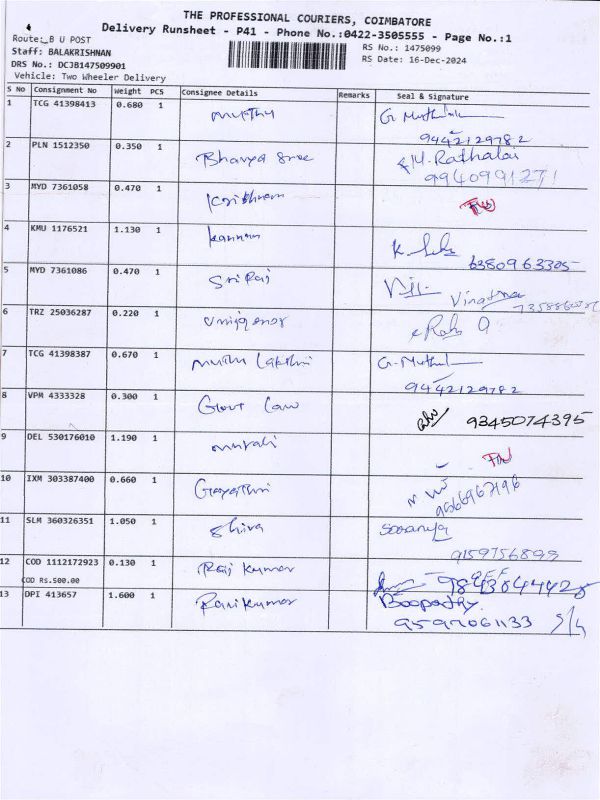 THE PROFESSIONAL COURIERS, COIMBATORE
Delivery Runsheet - P41 - Phone No.:0422-3505555 - Page No.:1
Route:_B U POST
RS No.: 1475099
Staff: BALAKRISHNAN
RS Date: 16-Dec-2024
DRS No.: DCJB147509901
Vehicle: Two Wheeler Delivery
S No Consignment No Weight PCS Consignee Details Remarks Seal & Signature
1 TCG 41398413 0.680 1 Murthy G. Muthul
9442129782
2 PLN 1512350 0.350 1 Bhavya Sree M. Rathalai
9940991271
3 MYD 7361058 0.470 1 Krishnam
4 KMU 1176521 1.130 1 Kannan
6380963305
5 MYD 7361086 0.470 1 Sri Raj
6 TRZ 25036287 0.220 1
7 TCG 41398387 0.670 1 Muthu Lakshmi G. Muthul
9442129782
8 VPM 4333328 0.300 1 Govt Law 9345074395
9 DEL 530176010 1.190 1 Murali
10 IXM 303387400 0.660 1 Gayathri
11 SLM 360326351 1.050 1 Shiva Saranya
9159756899
12 COD 1112172923 0.130 1 Raj Kumar
COD RS.500.00
13 DPI 413657 1.600 1 Ravi Kumar Boopathy.
9597061133